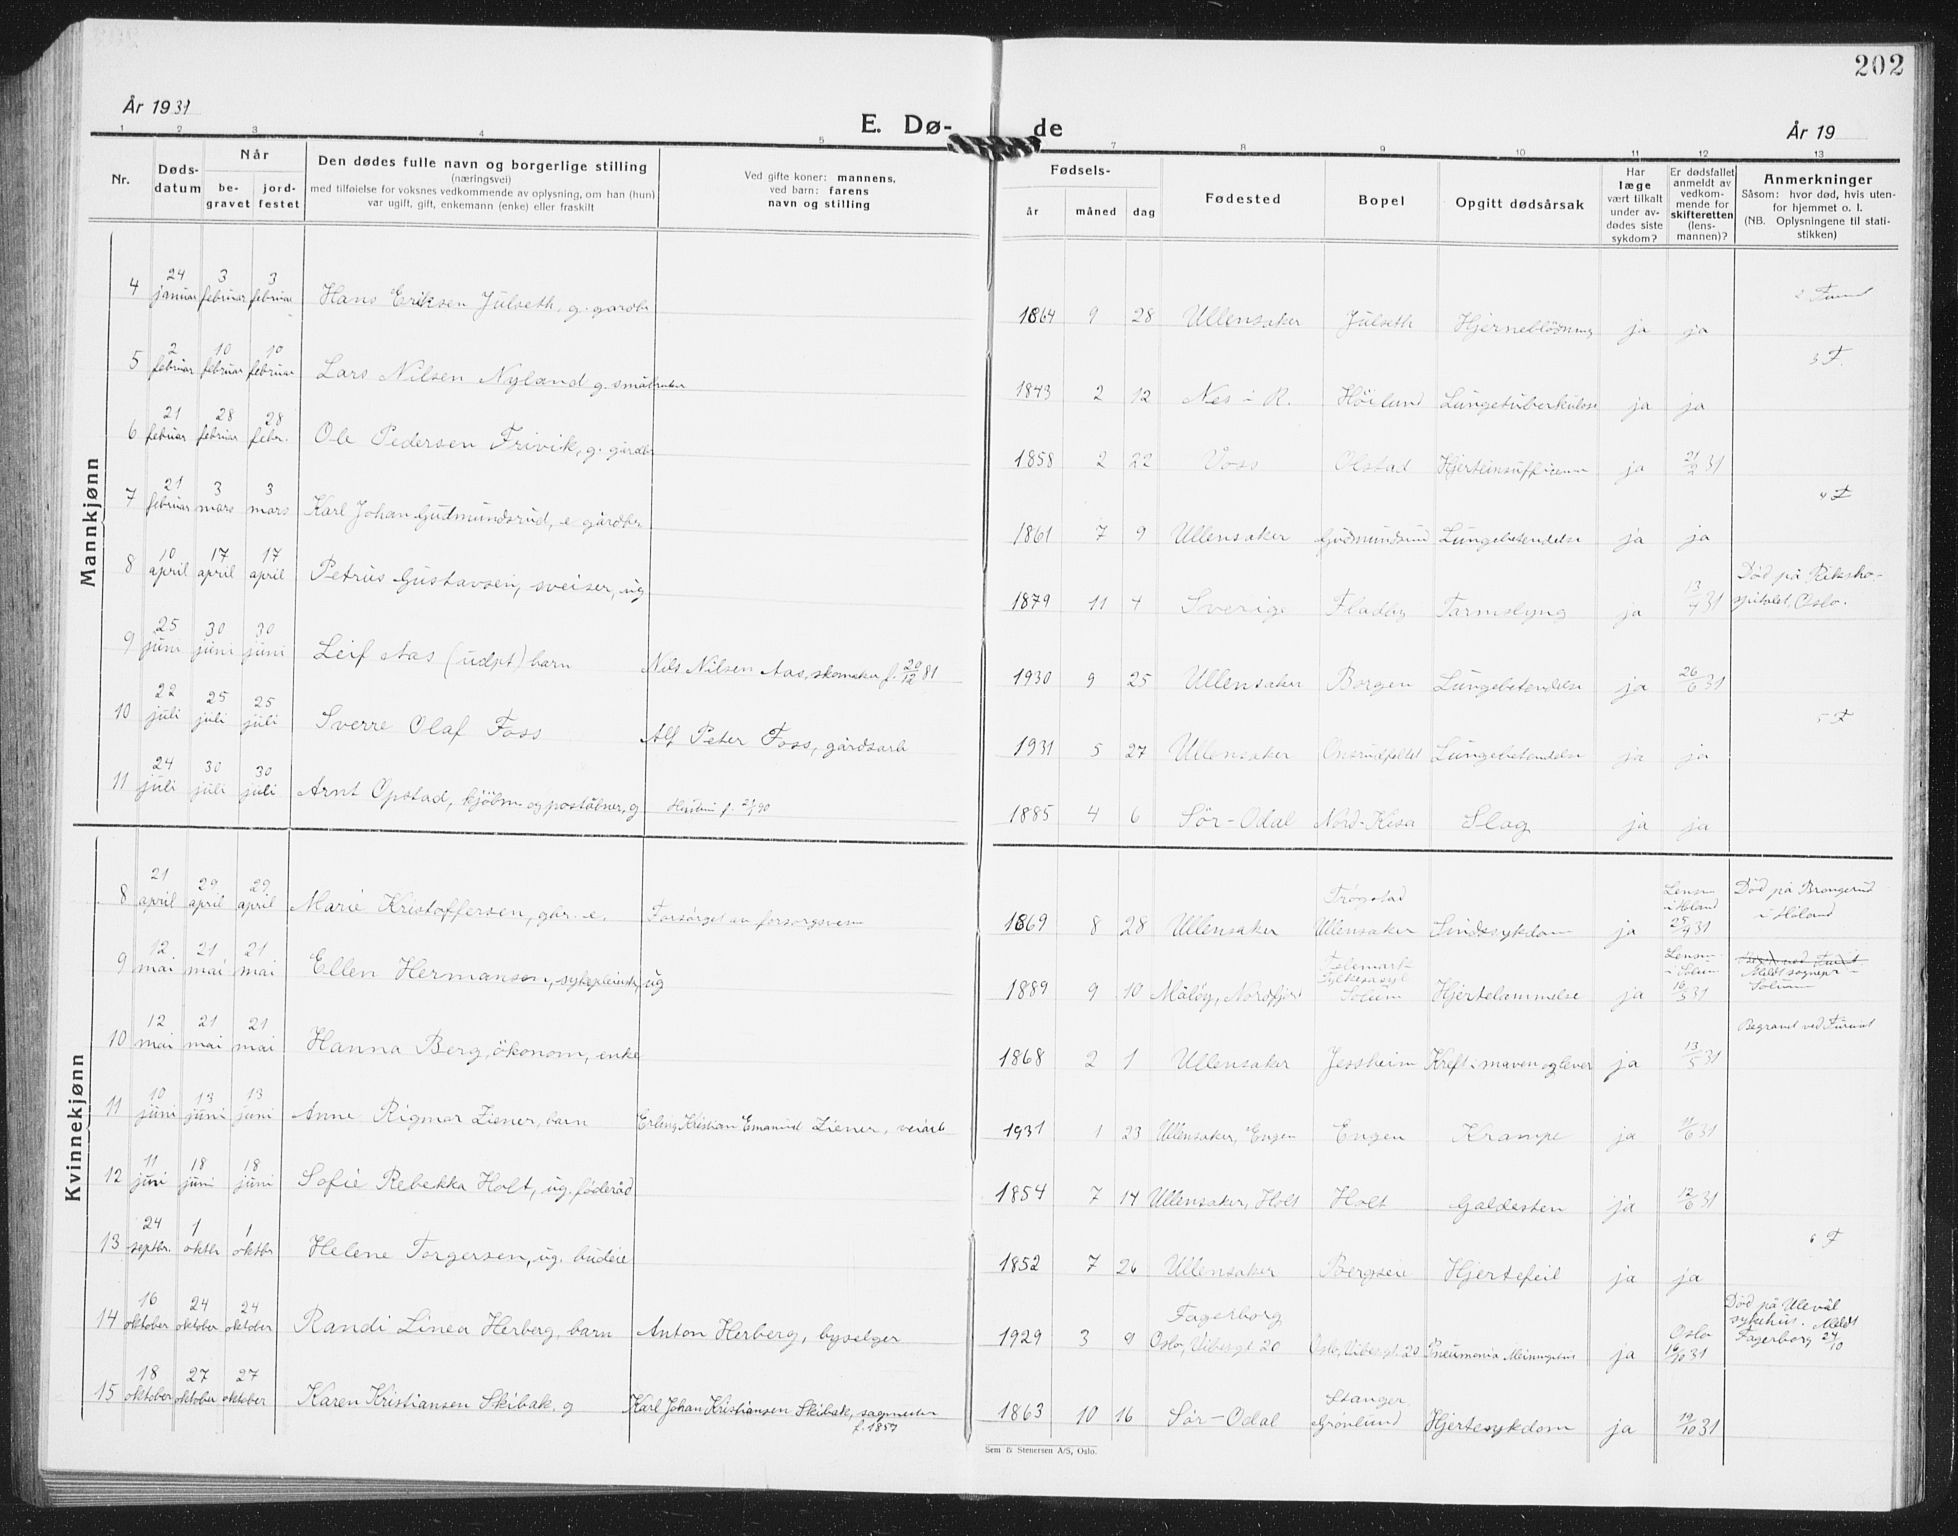 202
År 1931
E. Dø-
de
År 19
1 2 3 4 5 7 8 9 10 11 12 13
Nr.
Døds-
datum
Når
be-
gravet
jord-
festet
Den dødes fulle navn og borgerlige stilling
(næringsvei)
med tilføielse for voksnes vedkommende av oplysning, om han (hun)
var ugift, gift, enkemann (enke) eller fraskilt
Ved gifte koner: mannens,
ved barn: farens
navn og stilling
Fødsels-
år måned dag
Fødested
Bopel
Opgitt dødsårsak
Har
læge
vært tilkalt
under av-
dødes siste
sykdom?
Er dødsfallet
anmeldt av
vedkom-
mende for
skifteretten
(lens-
mannen)?
Anmerkninger
Såsom: hvor død, hvis uten-
for hjemmet o. l.
(NB. Oplysningene til stati-
stikken)
Mannkjønn
4 24 januar 3 februar 3 februar Hans Eriksen Julseth, g. gardbr 1864 9 28 Ullensaker Julseth Hjerneblödning ja ja
5 2 februar 10 februar 10 februar Lars Nilsen Nyland g. småbruker 1843 2 12 Nes i R. Höilund Lungetuberkulose ja ja 3 F.
6 21 februar 28 februar 28 febr. Ole Pedersen Frivik, g. gårdbr 1858 2 22 Voss Olstad Hjerteinsufficiens ja 21/2 31
7 21 februar 3 mars 3 mars Karl Johan Gudmundsrud, e gårdbr 1861 7 9 Ullensaker Gudmundsrud Lungebetendelse ja ja 4 F
8 10 april 17 april 17 april Petrus Gustavsen, sveiser, ug 1879 11 4 Sverige Fladby Tarmslyng ja 13/4 31 Død på Riksho-
spitalet, Oslo.
9 25 juni 30 juni 30 juni Leif Aas (udpt) barn Nils Nilsen Aas, skomaker f. 20/12 81 1930 9 25 Ullensaker Borgen Lungebetendelse ja 26/6 31
10 22 juli 25 juli 25 juli Sverre Olaf Foss Alf Peter Foss, gårdsarb 1931 5 27 Ullensaker Onsrudfeltet Lungebetendelse ja ja 5 F
11 24 juli 30 juli 30 juli Arnt Opstad, kjöbm og poståbner, g 1885 4 6 Sör-Odal Nord-Kisa Slag ja ja
Kvinnekjønn
8 21 april 29 april 29 april Marie Kristoffersen, gbr. e. Forsörget av forsorgsvesen 1869 8 28 Ullensaker Trögstad
Ullensaker Sindssykdom ja Lensm
i Höland
25/4 31 Död på Brangerud
i Höland
9 12 mai 21 mai 21 mai Ellen Hermansen, sykepleierske, ug 1889 9 10 Målöy, Nordfjord Telemark
Fylkesasyl
Solum Hjertelammelse ja Lensm
i Solum
16/5 31 Meldt sognepr
Solum
10 12 mai 21 mai 21 mai Hanna Berg, ökonom, enke 1868 2 1 Ullensaker Jessheim Kreft i maven og lever ja 13/5 31 Begravet ved Furuset
11 10 juni 13 juni 13 juni Anne Rigmor Ziener, barn Erling Kristian Emanuel Ziener, veiarb 1931 1 23 Ullensaker, Engen Engen Krampe ja 11/6 31
12 11 juni 18 juni 18 juni Sofie Rebekka Holt, ug. föderåd 1854 7 14 Ullensaker, Holt Holt Galdesten ja 12/6 31
13 24 septbr. 1 oktbr 1 oktbr Helene Torgersen, ug. budeie 1852 7 26 Ullensaker Bergseie Hjertefeil ja ja 6 F
14 16 oktober 24 oktober 24 oktober Randi Linea Herberg, barn Anton Herberg, byselger 1929 3 9 Fagerborg
Oslo, Vibesgt 20 Oslo, Vibesgt. 20 Pneumonia ja Oslo
16/10 31 Död på Ulevål
sykehus. Meldt
Fagerborg 24/10
15 18 oktober 27 oktober 27 oktober Karen Kristiansen Skibak, g Karl Johan Kristiansen Skibak, sagmester
f. 1857 1863 10 16 Sör-Odal Stanger,
Grönlund Hjertesykdom ja 19/10 31
Sem & Stenersen A/S, Oslo.